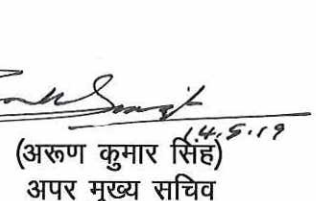 14.5.19
(अरूण कुमार सिंह)
अपर मुख्य सचिव